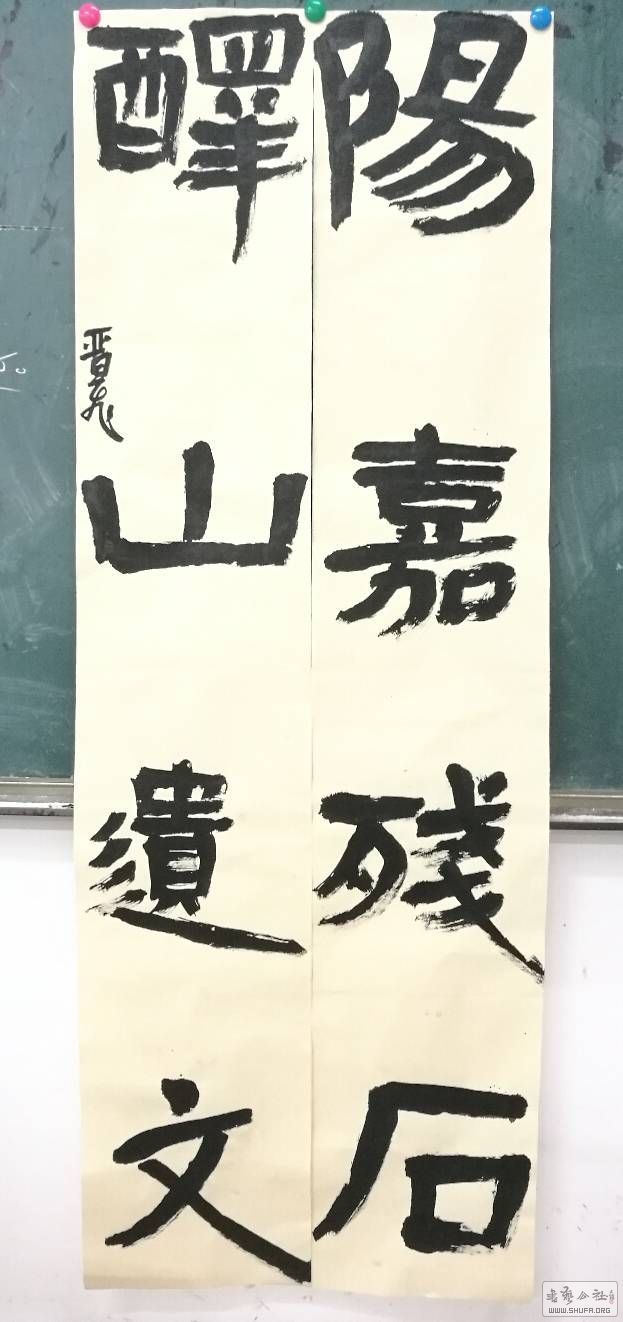 陽嘉殘石
醳山遺文
晋
书艺公社
WWW.SHUFA.ORG